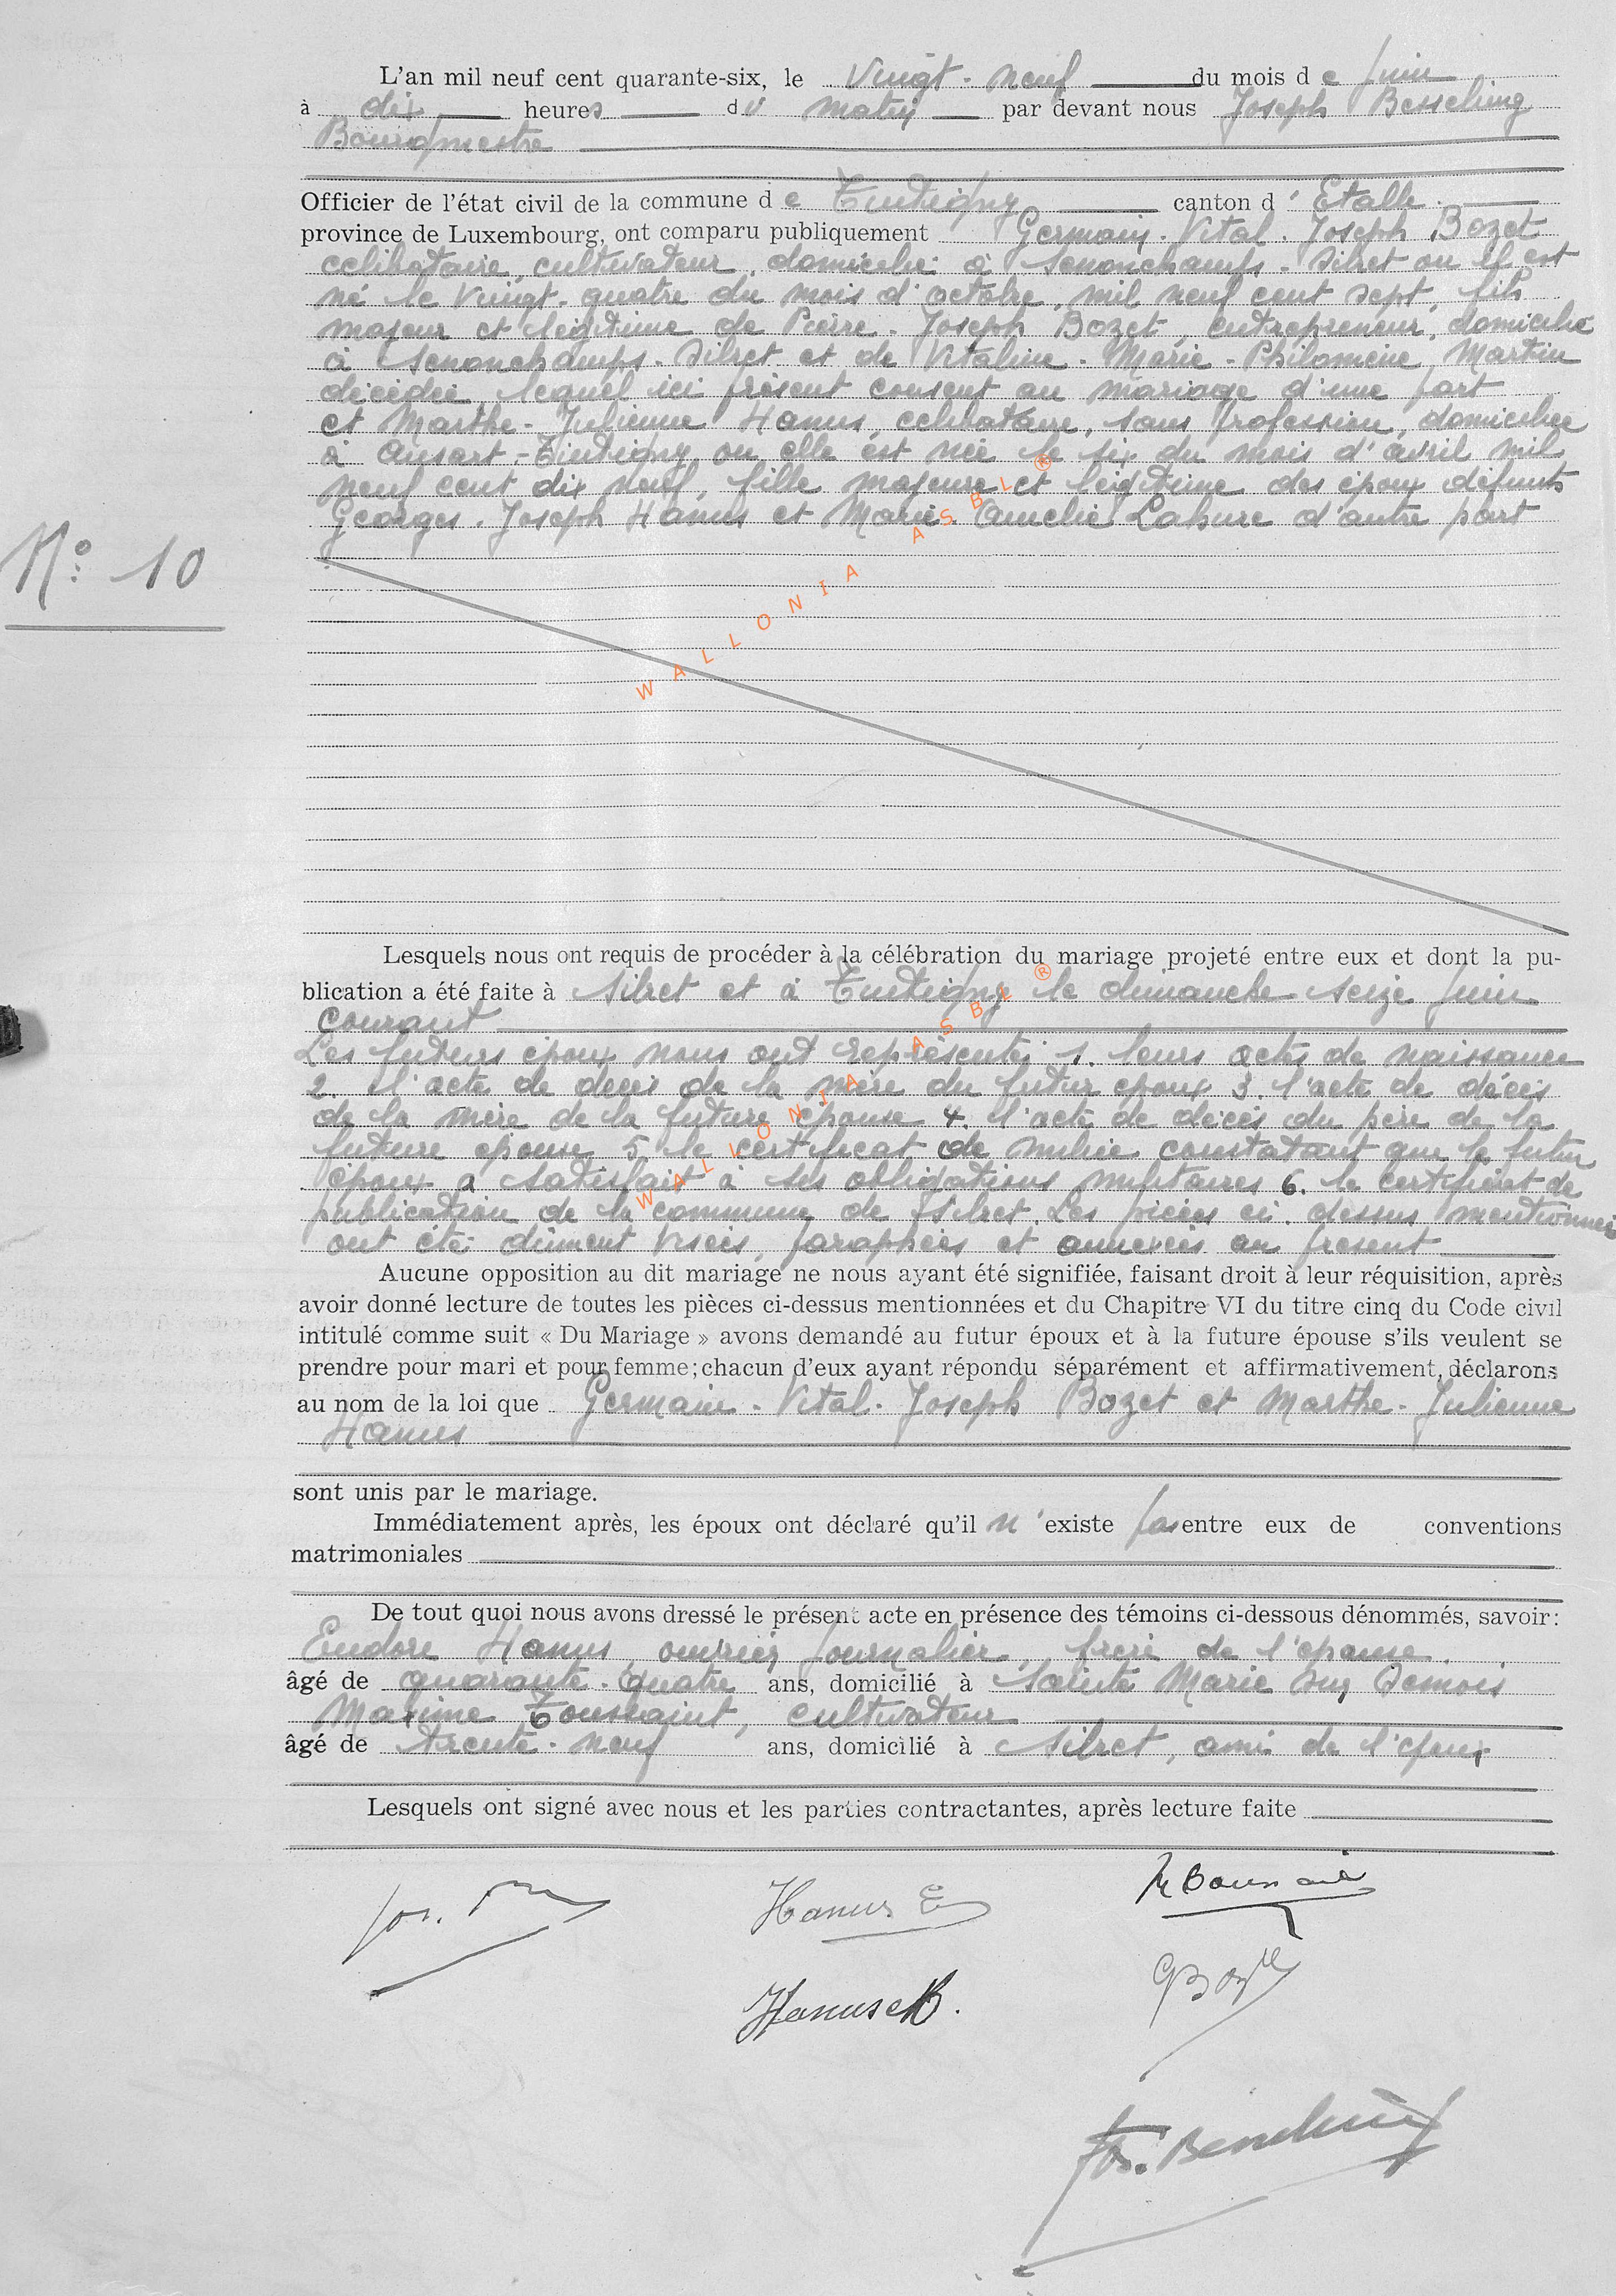 L'an mil neuf cent quarante-six, le vingt-neuf du mois de juin
à dix heures du matin par devant nous Joseph Besseling
Bourgmestre
Officier de l'état civil de la commune de Tintigny canton d'Etalle
province de Luxembourg, ont comparu publiquement Germain-Vital-Joseph Bozet
célibataire, cultivateur, domicilié à Senonchamps-Sibret où il est
né le vingt-quatre du mois d'octobre mil neuf cent sept, fils
majeur et légitime de Pierre-Joseph Bozet, entrepreneur, domicilié
à Senonchamps-Sibret et de Vitaline-Marie-Philomène Martin
décédée, lequel ici présent consent au mariage d'une part
et Marthe-Julienne Hanus, célibataire, sans profession, domiciliée
à Ansart-Tintigny où elle est née le six du mois d'avril mil
neuf cent dix neuf, fille majeure et légitime des époux défunts
Georges-Joseph Hanus et Marie-Amélie Lahure d'autre part
N° 10
WALLONIA ASBL ®
Lesquels nous ont requis de procéder à la célébration du mariage projeté entre eux et dont la pu-
blication a été faite à Sibret et à Tintigny le dimanche seize juin
courant
Les futurs époux nous ont représenté 1. leurs actes de naissance
2. l'acte de décès de la mère du futur époux 3. l'acte de décès
de la mère de la future épouse 4. l'acte de décès du père de la
future épouse 5. le certificat de milice constatant que le futur
époux a satisfait à ses obligations militaires 6. le certificat de
publication de la commune de Sibret. Les pièces ci-dessus mentionnées
ont été dûment visées, paraphées et annexées au présent
WALLONIA ASBL ®
Aucune opposition au dit mariage ne nous ayant été signifiée, faisant droit à leur réquisition, après
avoir donné lecture de toutes les pièces ci-dessus mentionnées et du Chapitre VI du titre cinq du Code civil
intitulé comme suit « Du Mariage » avons demandé au futur époux et à la future épouse s'ils veulent se
prendre pour mari et pour femme; chacun d'eux ayant répondu séparément et affirmativement, déclarons
au nom de la loi que Germain-Vital-Joseph Bozet et Marthe-Julienne
Hanus
sont unis par le mariage.
Immédiatement après, les époux ont déclaré qu'il n'existe pas entre eux de conventions
matrimoniales
De tout quoi nous avons dressé le présent acte en présence des témoins ci-dessous dénommés, savoir:
Eudore Hanus, ouvrier journalier, frère de l'épouse
âgé de quarante-quatre ans, domicilié à Sainte Marie sur Semois
Maxime Toussaint, cultivateur
âgé de trente-neuf ans, domicilié à Sibret, ami de l'époux
Lesquels ont signé avec nous et les parties contractantes, après lecture faite
Hanus E
Hanus
G Bozet
Jos. Besseling